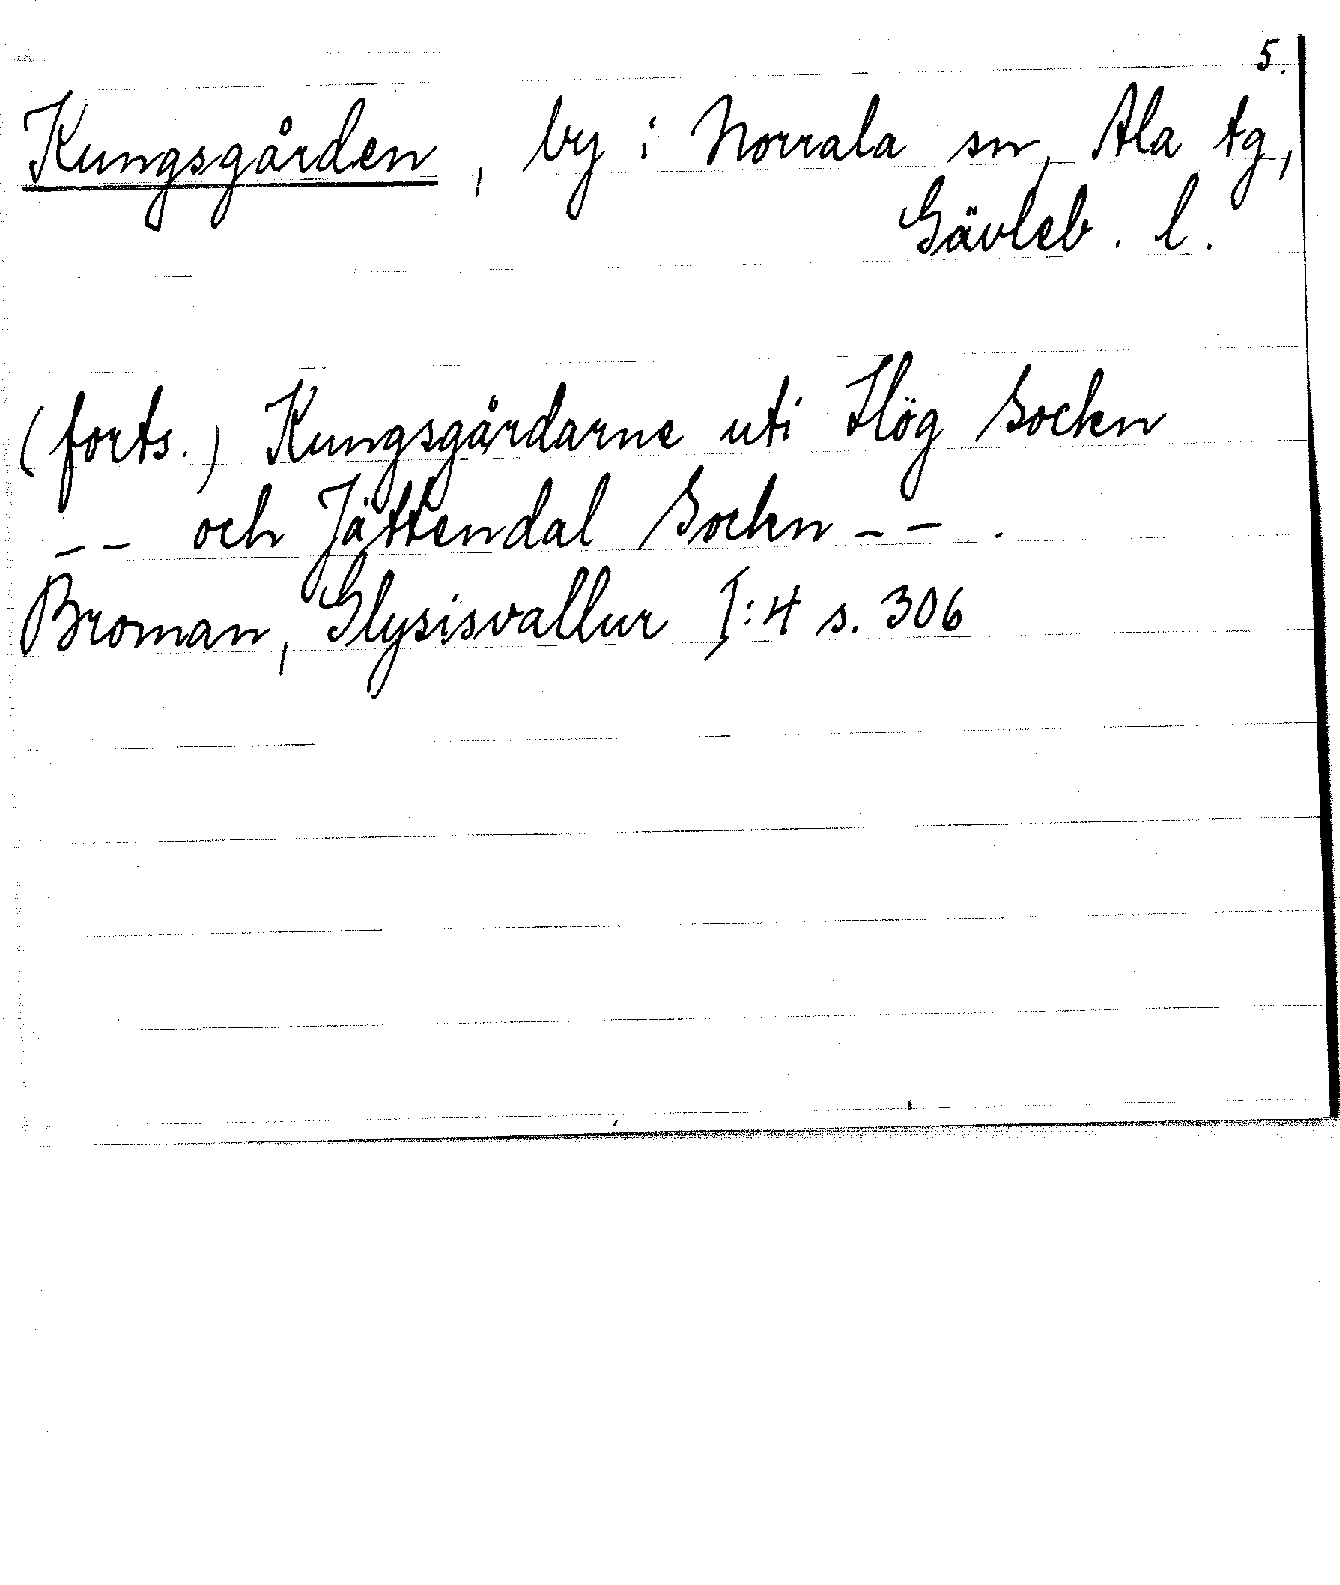 5.
Kungsgården, by i Norrala sn, Ala tg,
Gävleb. l.
(forts.) Kungsgårdarne uti Hög Sockn
-- och Jättendal Sockn -- .
Broman, Glysisvallur I:4 s. 306